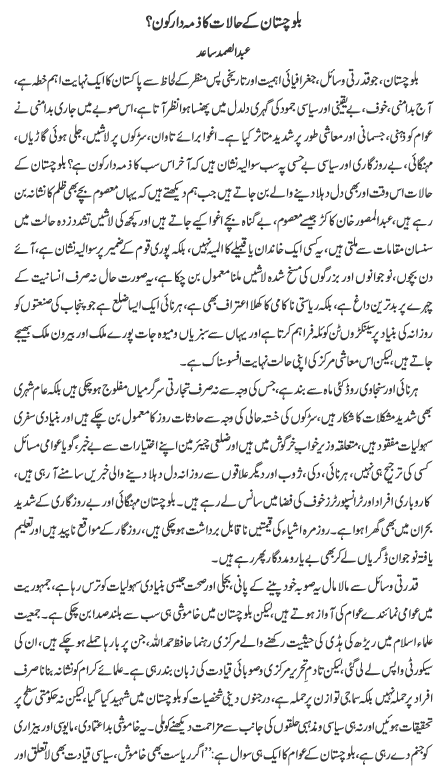 بلوچستان کے حالات کا ذمہ دار کون؟
عبدالصمد ساعد
بلوچستان، جو قدرتی وسائل، جغرافیائی اہمیت اور تاریخی پس منظر کے لحاظ سے پاکستان کا ایک نہایت اہم خطہ ہے،
آج بدامنی، خوف، بے یقینی اور سیاسی جمود کی گہری دلدل میں پھنسا ہوا نظر آتا ہے، اس صوبے میں جاری بدامنی نے
عوام کو ذہنی، جسمانی اور معاشی طور پر شدید متاثر کیا ہے۔ اغوا برائے تاوان، سڑکوں پر لاشیں، جلی ہوئی گاڑیاں،
مہنگائی، بے روزگاری اور سیاسی بے حسی یہ سب سوالیہ نشان ہیں کہ آخر اس سب کا ذمہ دار کون ہے؟ بلوچستان کے
حالات اس وقت اور بھی دل دہلا دینے والے بن جاتے ہیں جب ہم دیکھتے ہیں کہ یہاں معصوم بچے بھی ظلم کا نشانہ بن
رہے ہیں، عبدالمصور خان کاکڑ جیسے معصوم، بے گناہ بچے اغوا کیے جاتے ہیں اور کچھ کی لاشیں تشدد زدہ حالت میں
سنسان مقامات سے ملتی ہیں، یہ کسی ایک خاندان یا قبیلے کا المیہ نہیں، بلکہ پوری قوم کے ضمیر پر سوالیہ نشان ہے، آئے
دن بچوں، نوجوانوں اور بزرگوں کی مسخ شدہ لاشیں ملنا معمول بن چکا ہے، یہ صورت حال نہ صرف انسانیت کے
چہرے پر بدترین داغ ہے، بلکہ ریاستی ناکامی کا کھلا اعتراف بھی ہے، ہرنائی ایک ایسا ضلع ہے جو پنجاب کی صنعتوں کو
روزانہ کی بنیاد پر سینکڑوں ٹن کوئلہ فراہم کرتا ہے اور یہاں سے سبزیاں و میوہ جات پورے ملک اور بیرون ملک بھیجے
جاتے ہیں، لیکن اس معاشی مرکز کی اپنی حالت نہایت افسوسناک ہے۔
ہرنائی اور سنجاوی روڈ کئی ماہ سے بند ہے، جس کی وجہ سے نہ صرف تجارتی سرگرمیاں مفلوج ہو چکی ہیں بلکہ عام شہری
بھی شدید مشکلات کا شکار ہیں، سڑکوں کی خستہ حالی کی وجہ سے حادثات روز کا معمول بن چکے ہیں اور بنیادی سفری
سہولیات مفقود ہیں، متعلقہ وزیر خواب خرگوش میں ہیں اور ضلعی چیئرمین اپنے اختیارات سے بے خبر، گویا عوامی مسائل
کسی کی ترجیح ہی نہیں، ہرنائی، دکی، ژوب اور دیگر علاقوں سے روزانہ دل دہلا دینے والی خبریں سامنے آ رہی ہیں،
کاروباری افراد اور ٹرانسپورٹرز خوف کی فضا میں سانس لے رہے ہیں۔ بلوچستان مہنگائی اور بے روزگاری کے شدید
بحران میں بھی گھرا ہوا ہے۔ روزمرہ اشیاء کی قیمتیں ناقابل برداشت ہو چکی ہیں، روزگار کے مواقع ناپید ہیں اور تعلیم
یافتہ نوجوان ڈگریاں لے کر بھی بے یار و مددگار پھر رہے ہیں۔
قدرتی وسائل سے مالامال یہ صوبہ خود پینے کے پانی، بجلی اور صحت جیسی بنیادی سہولیات کو ترس رہا ہے، جمہوریت
میں عوامی نمائندے عوام کی آواز ہوتے ہیں، لیکن بلوچستان میں خاموشی ہی سب سے بلند صدا بن چکی ہے۔ جمعیت
علماء اسلام میں ریڑھ کی ہڈی کی حیثیت رکھنے والے مرکزی رہنما حافظ حمداللہ، جن پر بارہا حملے ہو چکے ہیں، ان کی
سیکورٹی واپس لے لی گئی، لیکن تادم تحریر مرکزی و صوبائی قیادت کی زبان بند رہی ہے۔ علمائے کرام کو نشانہ بنانا صرف افراد
پر حملہ نہیں بلکہ سماجی توازن پر حملہ ہے، درجنوں دینی شخصیات کو بلوچستان میں شہید کیا گیا، لیکن نہ حکومتی سطح پر
تحقیقات ہوئیں اور نہ ہی سیاسی و مذہبی حلقوں کی جانب سے مزاحمت دیکھنے کو ملی۔ یہ خاموشی بداعتمادی، مایوسی اور بیزاری
کو جنم دے رہی ہے، بلوچستان کے عوام کا ایک ہی سوال ہے: ”اگر ریاست بھی خاموش، سیاسی قیادت بھی لاتعلق اور